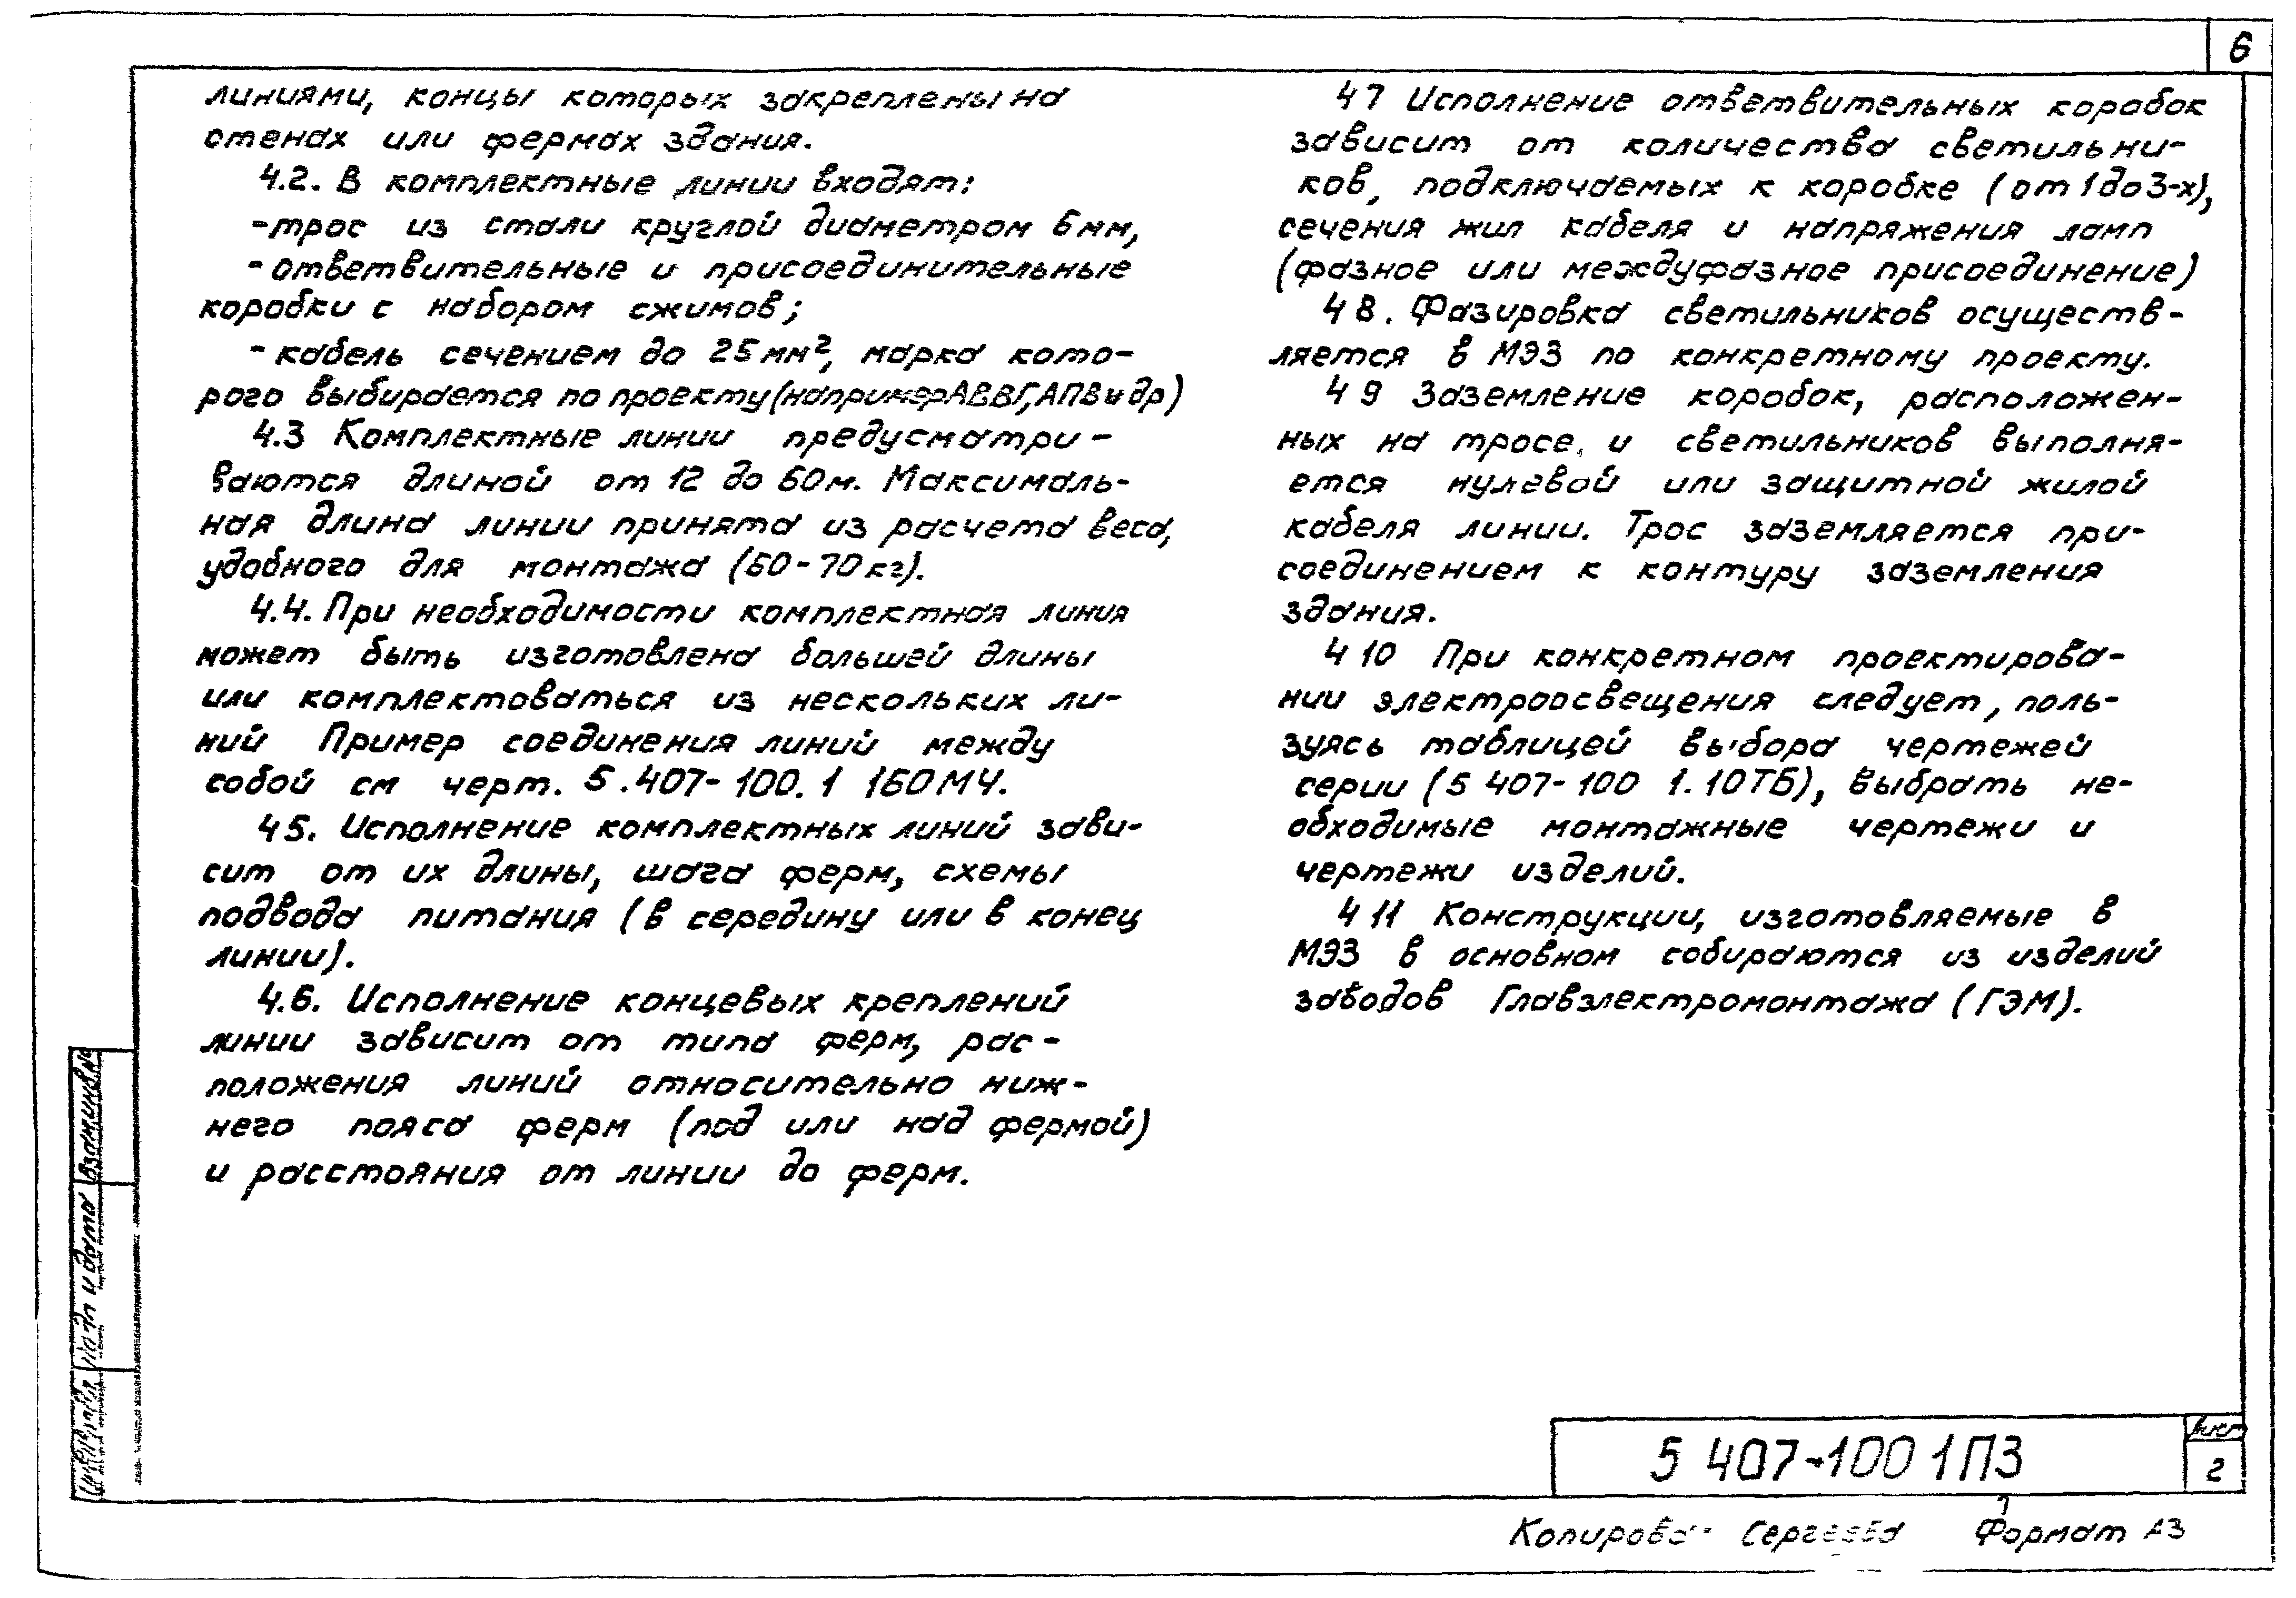 6
линиями, концы которых закреплены на
стенах или фермах здания.
4.2. В комплектные линии входят:
-трос из стали круглой диаметром 6мм,
- ответвительные и присоединительные
коробки с набором сжимов;
- кабель сечением до 25мм², марка кото-
рого выбирается по проекту (например АВВГ, АПВ и др)
4.3 Комплектные линии предусматри-
ваются длиной от 12 до 60м. Максималь-
ная длина линии принята из расчета веса,
удобного для монтажа (60-70кг).
4.4. При необходимости комплектная линия
может быть изготовлена большей длины
или комплектоваться из нескольких ли-
ний Пример соединения линий между
собой см черт. 5.407-100.1 160МЧ.
4 5. Исполнение комплектных линий зави-
сит от их длины, шага ферм, схемы
подвода питания (в середину или в конец
линии).
4.6. Исполнение концевых креплений
линии зависит от типа ферм, рас-
положения линий относительно ниж-
него пояса ферм (под или над фермой)
и расстояния от линии до ферм.
4 7 Исполнение ответвительных коробок
зависит от количества светильни-
ков, подключаемых к коробке (от 1 до 3-х),
сечения жил кабеля и напряжения ламп
(фазное или междуфазное присоединение)
4 8. Фазировка светильников осуществ-
ляется в МЭЗ по конкретному проекту.
4 9 Заземление коробок, расположен-
ных на тросе, и светильников выполня-
ется нулевой или защитной жилой
кабеля линии. Трос заземляется при-
соединением к контуру заземления
здания.
4 10 При конкретном проектирова-
нии электроосвещения следует, поль-
зуясь таблицей выбора чертежей
серии (5 407-100 1.10ТБ), выбрать не-
обходимые монтажные чертежи и
чертежи изделий.
4 11 Конструкции, изготовляемые в
МЭЗ в основном собираются из изделий
заводов Главэлектромонтажа (ГЭМ).
Взам.инв.№
Подп и дата
5 407-100 1ПЗ
Лист
2
Копировал Сергеева Формат А3